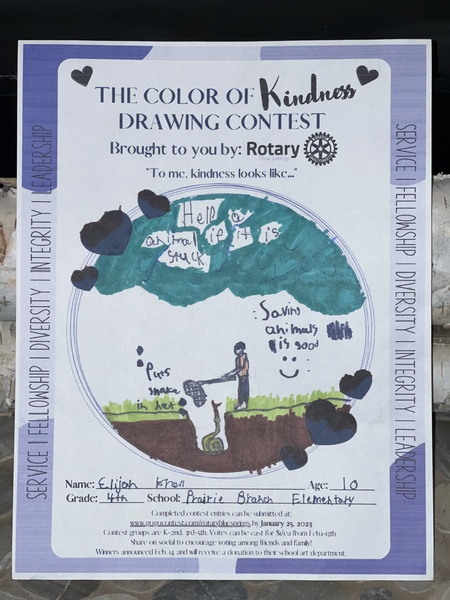 THE COLOR OF Kindness
DRAWING CONTEST
Brought to you by: Rotary
Blue Springs
"To me, kindness looks like..."
SERVICE | FELLOWSHIP | DIVERSITY | INTEGRITY | LEADERSHIP
SERVICE | FELLOWSHIP | DIVERSITY | INTEGRITY | LEADERSHIP
Help a
animal if it is
stuck
: Saving
animals
is good
: Puts
snake
in net
Name: Elijah Age: 10
Grade: 4th School: Prairie Branch Elementary
Completed contest entries can be submitted at:
www.gogocontest.com/rotarybluesprings by January 25, 2023
Contest groups are K-2nd, 3rd-5th. Votes can be cast for $1/ea from Feb.1-13th.
Share on social to encourage voting among friends and family!
Winners announced Feb. 14, and will receive a donation to their school art department.